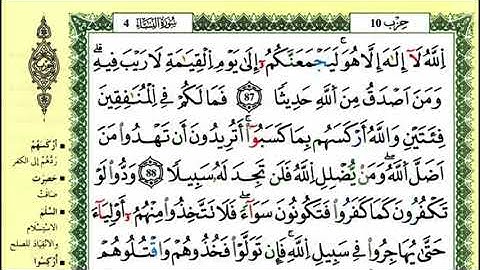 حِزْبُ 10
سُورَةُ النِّسَاءِ 4
اِ۬للَّهُ لَآ إِلَٰهَ إِلَّا هُوَ لَيَجْمَعَنَّكُمُۥٓ إِلَىٰ يَوْمِ اِ۬لْقِيَٰمَةِ لَا رَيْبَ فِيهِ
وَمَنَ اَصْدَقُ مِنَ اَ۬للَّهِ حَدِيثًا 87 فَمَا لَكُمْ فِي اِ۬لْمُنَٰفِقِينَ
فِئَتَيْنِ وَاللَّهُ أَرْكَسَهُم بِمَا كَسَبُوٓاْ أَتُرِيدُونَ أَن تَهْدُواْ مَنَ
اَضَلَّ اَ۬للَّهُ وَمَنْ يُّضْلِلِ اِ۬للَّهُ فَلَن تَجِدَ لَهُۥ سَبِيلًا 88 وَدُّواْ لَوْ
تَكْفُرُونَ كَمَا كَفَرُواْ فَتَكُونُونَ سَوَآءً فَلَا تَتَّخِذُواْ مِنْهُمُۥٓ أَوْلِيَآءَ
حَتَّىٰ يُهَاجِرُواْ فِي سَبِيلِ اِ۬للَّهِ فَإِن تَوَلَّوْاْ فَخُذُوهُمْ وَاقْتُلُوهُمْ
أَرْكَسَهُمْ
رَدَّهُمْ إلى الكفر
حَصِرَتْ
ضاقت
السَّلَمَ
الاستسلام
والانقياد للصلح
أُرْكِسُوا